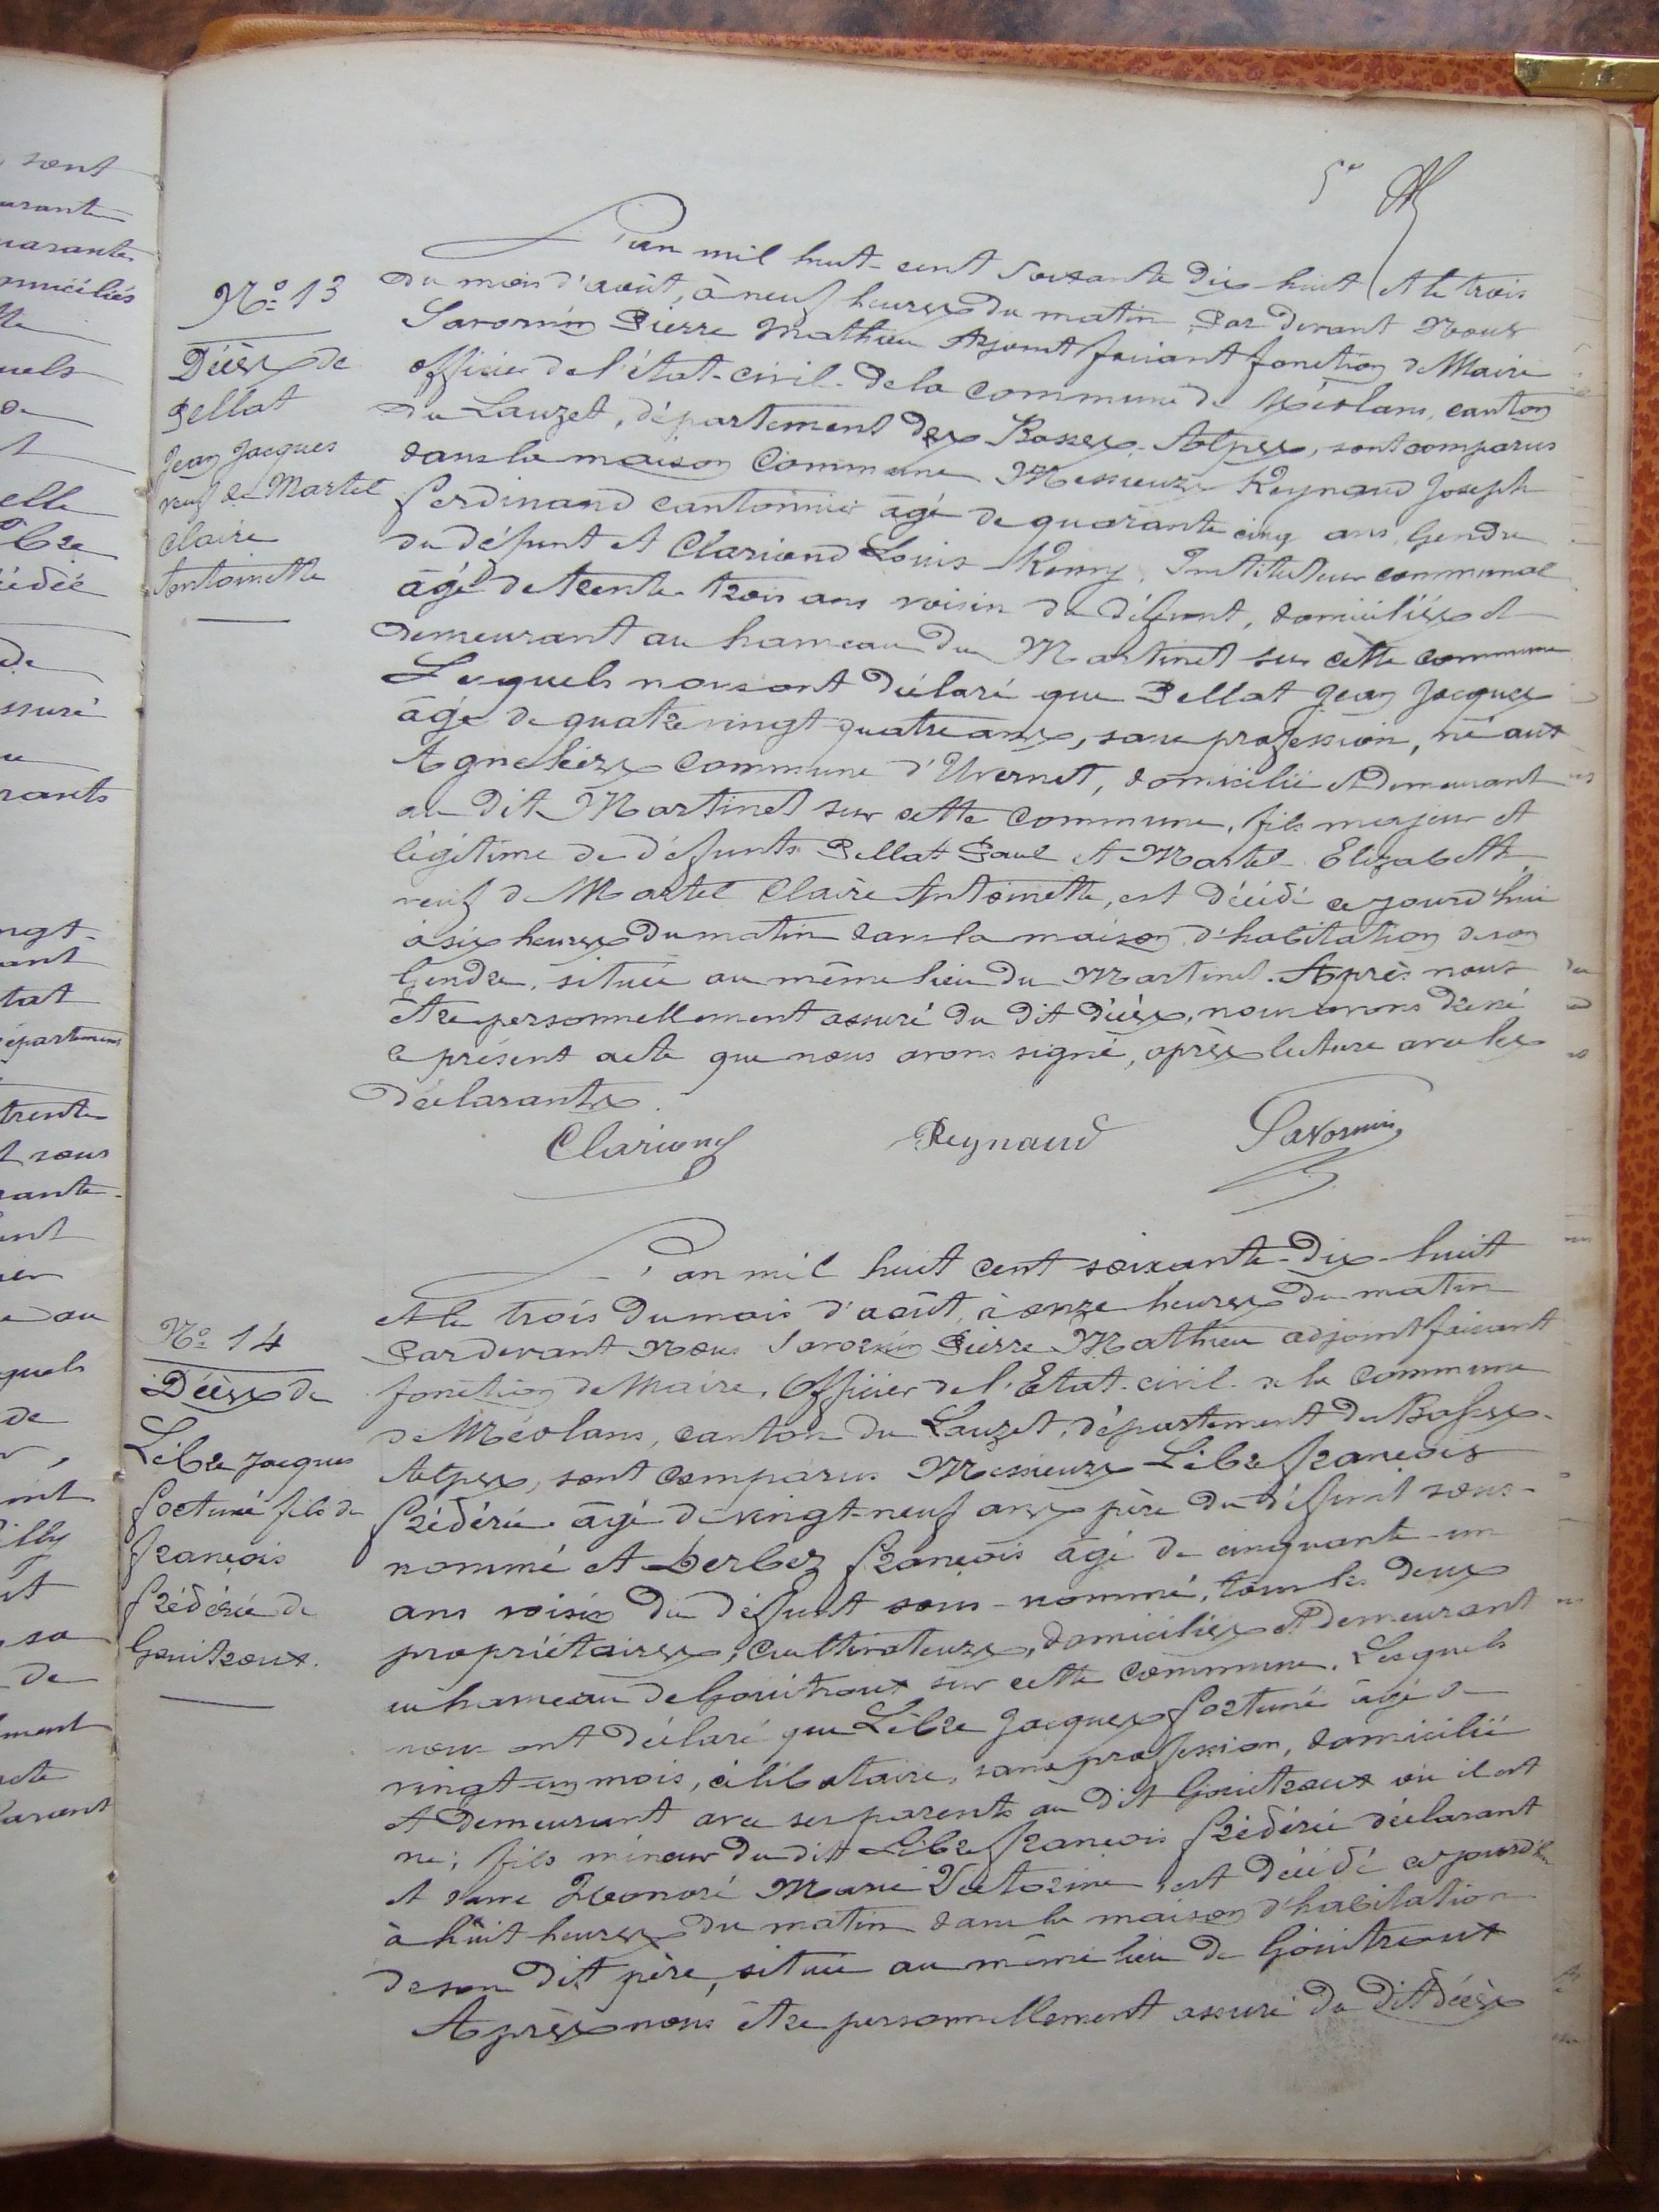 5e
L'an mil huit-cent soixante dix-huit et le trois
du mois d'août, à neuf heures du matin, Par devant Nous
Savornin Pierre Mathieu Adjoint faisant fonction de Maire
officier de l'état-civil de la commune de Méolans, canton
du Lauzet, département des Basses-Alpes, sont comparus
dans la maison Commune Messieurs Reynaud Joseph
ferdinand cantonnier âgé de quarante cinq ans, Gendre
du défunt et Clariond Louis Rémy, Instituteur communal
âgé de trente-trois ans voisin du défunt, domiciliés et
demeurant au hameau du Martinet sur cette commune
Lesquels nous ont déclaré que Pellat Jean Jacques
âgé de quatre vingt quatre ans, sans profession, né aux
Agneliers commune d'Uvernet, domicilié et demeurant
au dit Martinet sur cette commune, fils majeur et
légitime de défunts Pellat Paul et Martel Elizabeth
veuf de Martel Claire Antoinette, est décédé aujourd'hui
à six heures du matin dans la maison d'habitation de son
Gendre, située au même lieu du Martinet. Après nous
être personnellement assuré du dit décès, nous avons dressé
le présent acte que nous avons signé, après lecture avec les
déclarants.
Clariond Reynaud Savornin
N° 13
Décès de
Pellat
Jean Jacques
veuf de Martel
Claire
Antoinette
L'an mil huit cent soixante-dix-huit
et le trois du mois d'août, à onze heures du matin
Par devant Nous Savornin Pierre Mathieu adjoint faisant
fonction de Maire, Officier de l'Etat-civil de la Commune
de Méolans, canton du Lauzet, département des Basses-
Alpes, sont comparus Messieurs Lèbre françois
frédéric âgé de vingt-neuf ans père du défunt sous-
nommé et Derbez françois âgé de cinquante-un
ans voisin du défunt sous-nommé, tous les deux
propriétaires, Cultivateurs, domiciliés et demeurant
au hameau de Gouitroux sur cette commune. Lesquels
nous ont déclaré que Lèbre Jacques fortuné âgé de
vingt-un mois, célibataire, sans profession, domicilié
et demeurant avec ses parents au dit Gouitroux où il est
né, fils mineur du dit Lèbre françois frédéric déclarant
et dame Honoré Marie Victorine, est décédé aujourd'hui
à huit heures du matin dans la maison d'habitation
de son dit père, située au même lieu de Gouitroux
Après nous être personnellement assuré du dit décès
N° 14
Décès de
Lèbre Jacques
fortuné fils de
françois
frédéric de
Gouitroux.